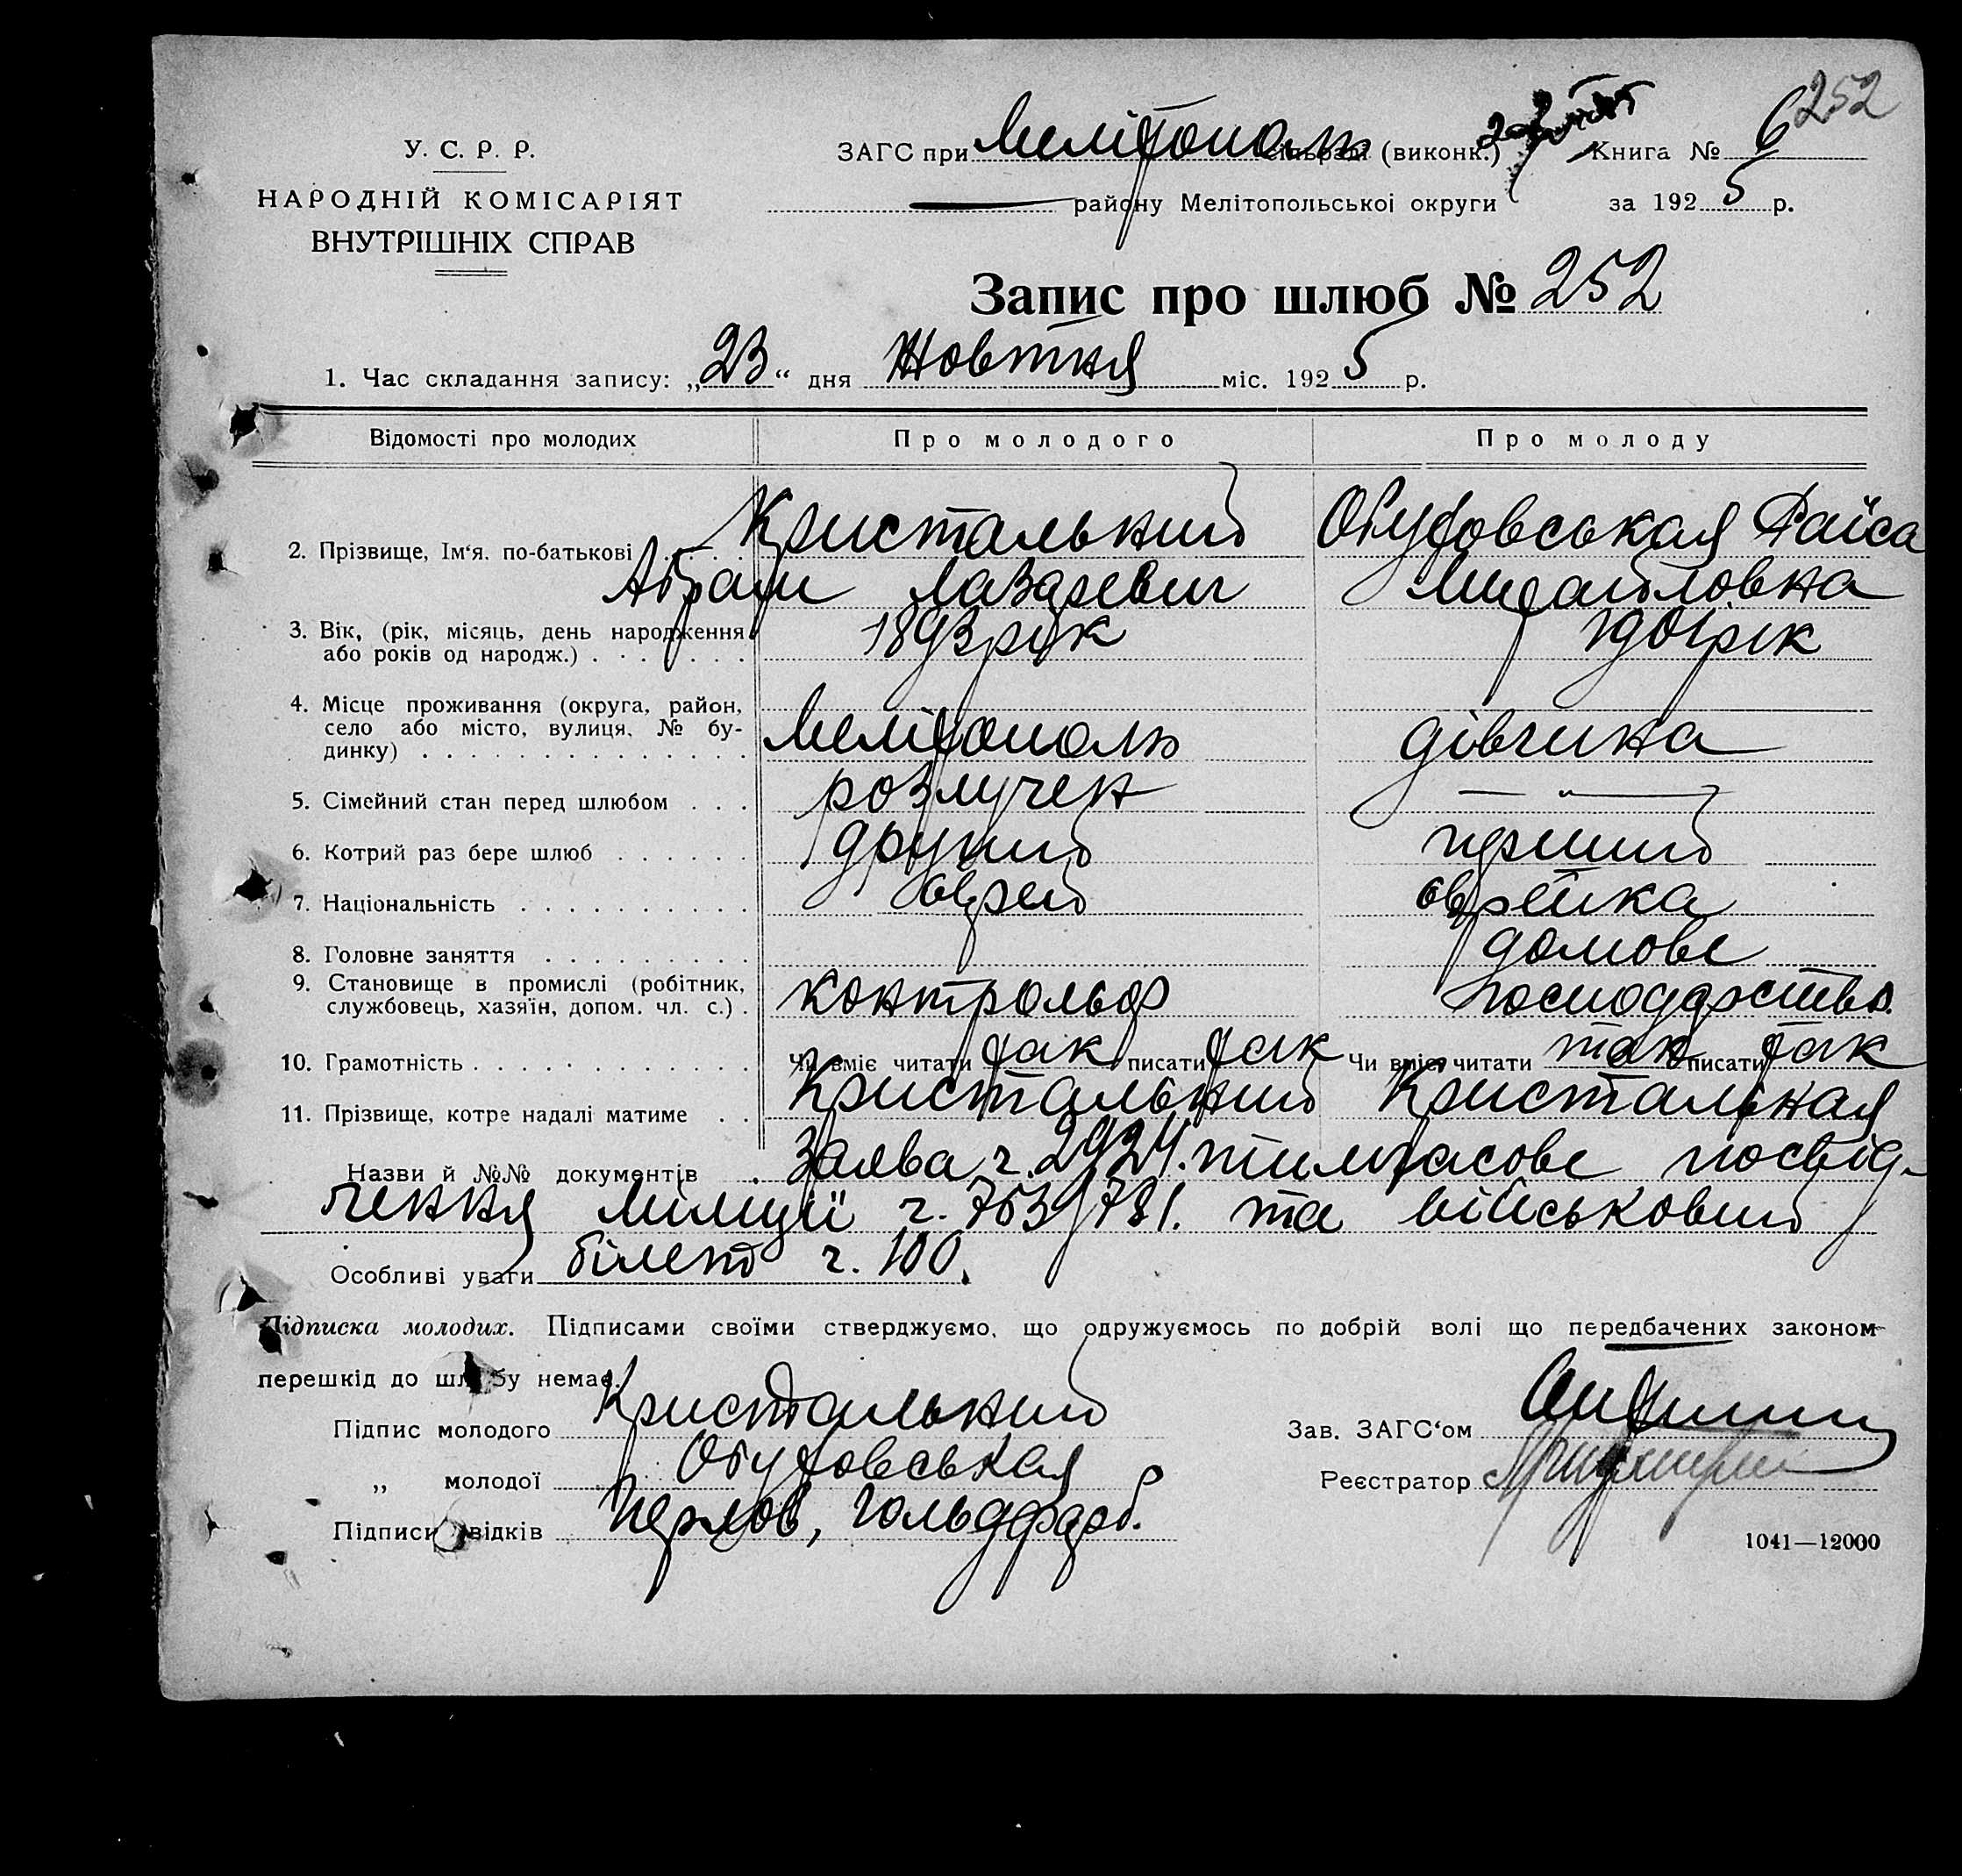 252
У. С. Р. Р.
НАРОДНІЙ КОМІСАРІЯТ
ВНУТРІШНІХ СПРАВ
ЗАГС при Мелітополь сільраді (виконк.) Книга № 6
району Мелітопольської округи за 1925 р.
Запис про шлюб № 252
1. Час складання запису: „23“ дня Жовтня міс. 1925 р.
Відомості про молодих Про молодого Про молоду
2. Прізвище, Ім‘я. по-батькові Кристальний Обуховськая Раїса
Абрам Лазаревич Михайловна
3. Вік, (рік, місяць, день народження 1893 рік 1901 рік
або років од народж.)
4. Місце проживання (округа, район,
село або місто, вулиця, № бу- Мелітополь дівчина
динку)
5. Сімейний стан перед шлюбом розлучен — „ —
6. Котрий раз бере шлюб другий перший
7. Національність еврей еврейка
8. Головне заняття домове
9. Становище в промислі (робітник, контрольор господарство.
службовець, хазяїн, допом. чл. с.)
10. Грамотність Чи вміє читати так писати так Чи вміє читати так писати так
11. Прізвище, котре надалі матиме Кристальний Кристальная
Назви й №№ документів Заява ч. 2924. тимчасове посвід-
чення міліції ч. 7639/781. та військовий
Особливі уваги білет ч. 100.
Підписка молодих. Підписами своїми стверджуємо, що одружуємось по добрій волі що передбачених законом
перешкід до шлюбу немає.
Підпис молодого Кристальний Зав. ЗАГС‘ом
„ молодої Обуховськая Реєстратор
Підписи свідків Перлов, Гольдфарб.
1041—12000